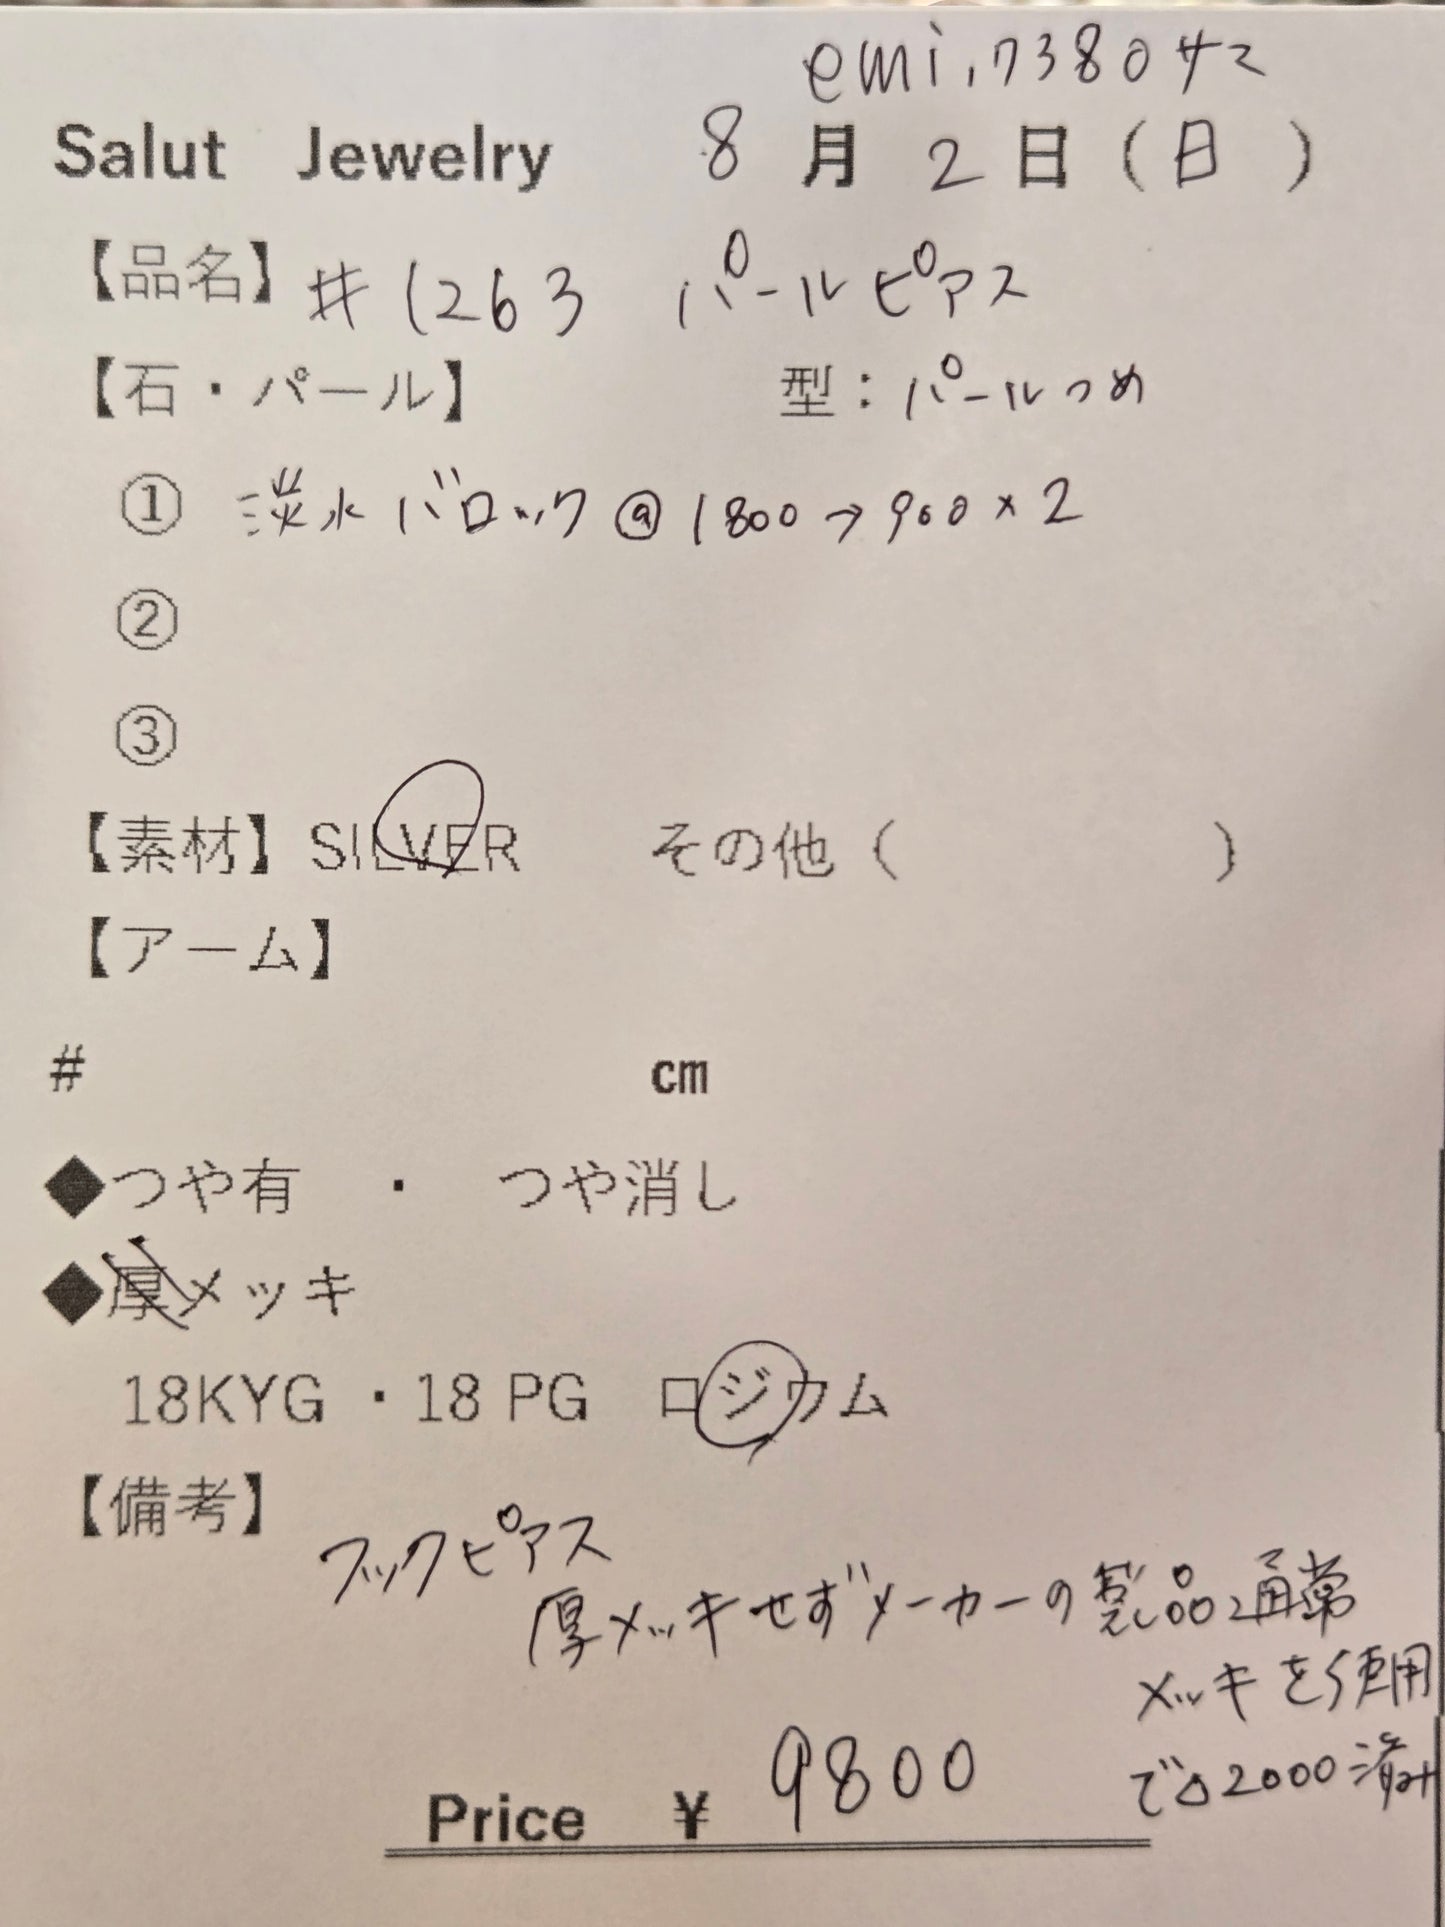 emi.7380サマ
Salut Jewelry 8月2日(日)
【品名】#1263 パールピアス
【石・パール】 型:パールつめ
① 淡水バロック@1800→900×2
②
③
【素材】SILVER その他( )
【アーム】
# cm
◆つや有 ・ つや消し
◆厚メッキ
18KYG ・18 PG ロジウム
【備考】
フックピアス
厚メッキせずメーカーの製品通常
メッキを使用
で△2000済み
Price ¥ 9800